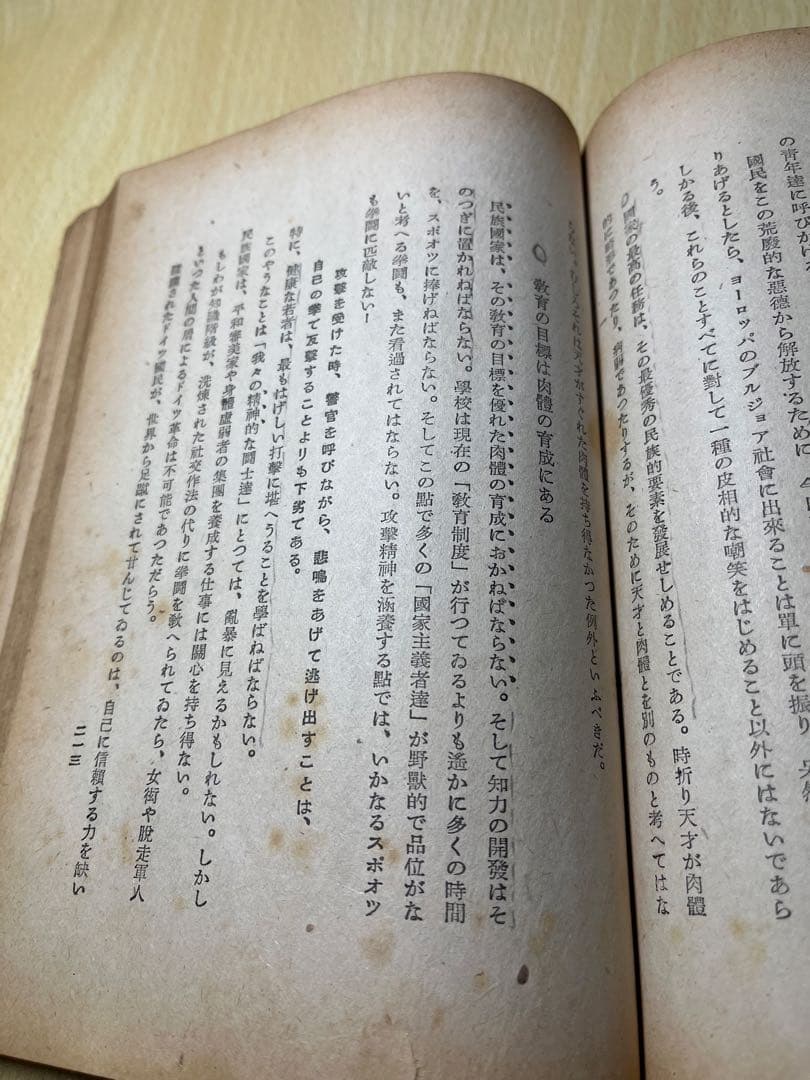 の青年達に呼びかける
國民をこの荒廢的な惡德から解放するために
りあげるとしたら、ヨーロッパのブルジョア社會に出來ることは單に頭を振り
しかる後、これらのことすべてに對して一種の皮相的な嘲笑をはじめること以外にはないであら
う。
國家の最高の任務は、その最優秀の民族的要素を發展せしめることである。時折り天才が肉體
的に であつたり、病弱であつたりするが、そのために天才と肉體とを別のものと考へてはな
これは天才がすぐれた肉體を持ち得なかつた例外といふべきだ。
敎育の目標は肉體の育成にある
民族國家は、その敎育の目標を優れた肉體の育成におかねばならない。そして知力の開發はそ
のつぎに置かれねばならない。學校は現在の「敎育制度」が行つてゐるよりも遙かに多くの時間
を、スポオツに捧げねばならない。そしてこの點で多くの「國家主義者達」が野獸的で品位がな
いと考へる拳鬪も、また看過されてはならない。攻擊精神を涵養する點では、いかなるスポオツ
も拳鬪に匹敵しない!
攻擊を受けた時、警官を呼びながら、悲鳴をあげて逃げ出すことは、
自己の拳で反擊することよりも下劣である。
特に、健康な若者は、最もはげしい打擊に堪へうることを學ばねばならない。
このやうなことは「我々の精神的な鬪士達」にとつては、亂暴に見えるかもしれない。しかし
民族國家は、平和審美家や身體虛弱者の集團を養成する仕事には關心を持ち得ない。
もしわが知識階級が、洗煉された社交作法の代りに拳鬪を敎へられてゐたら、女衒や脫走軍人
といつた人間の屑によるドイツ革命は不可能であつただらう。
されたドイツ國民が、世界から足蹴にされて甘んじてゐるのは、自己に信賴する力を缺い
二一三